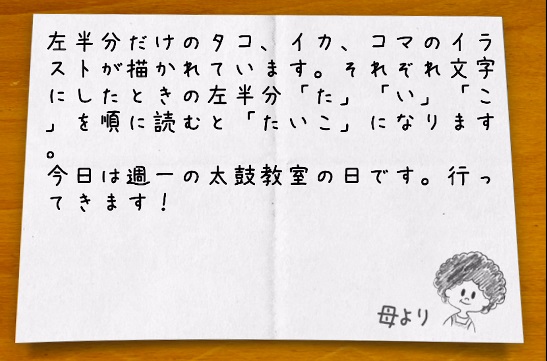 左半分だけのタコ、イカ、コマのイラ
ストが描かれています。それぞれ文字
にしたときの左半分「た」「い」「こ
」を順に読むと「たいこ」になります
。
今日は週一の太鼓教室の日です。行っ
てきます！
母より